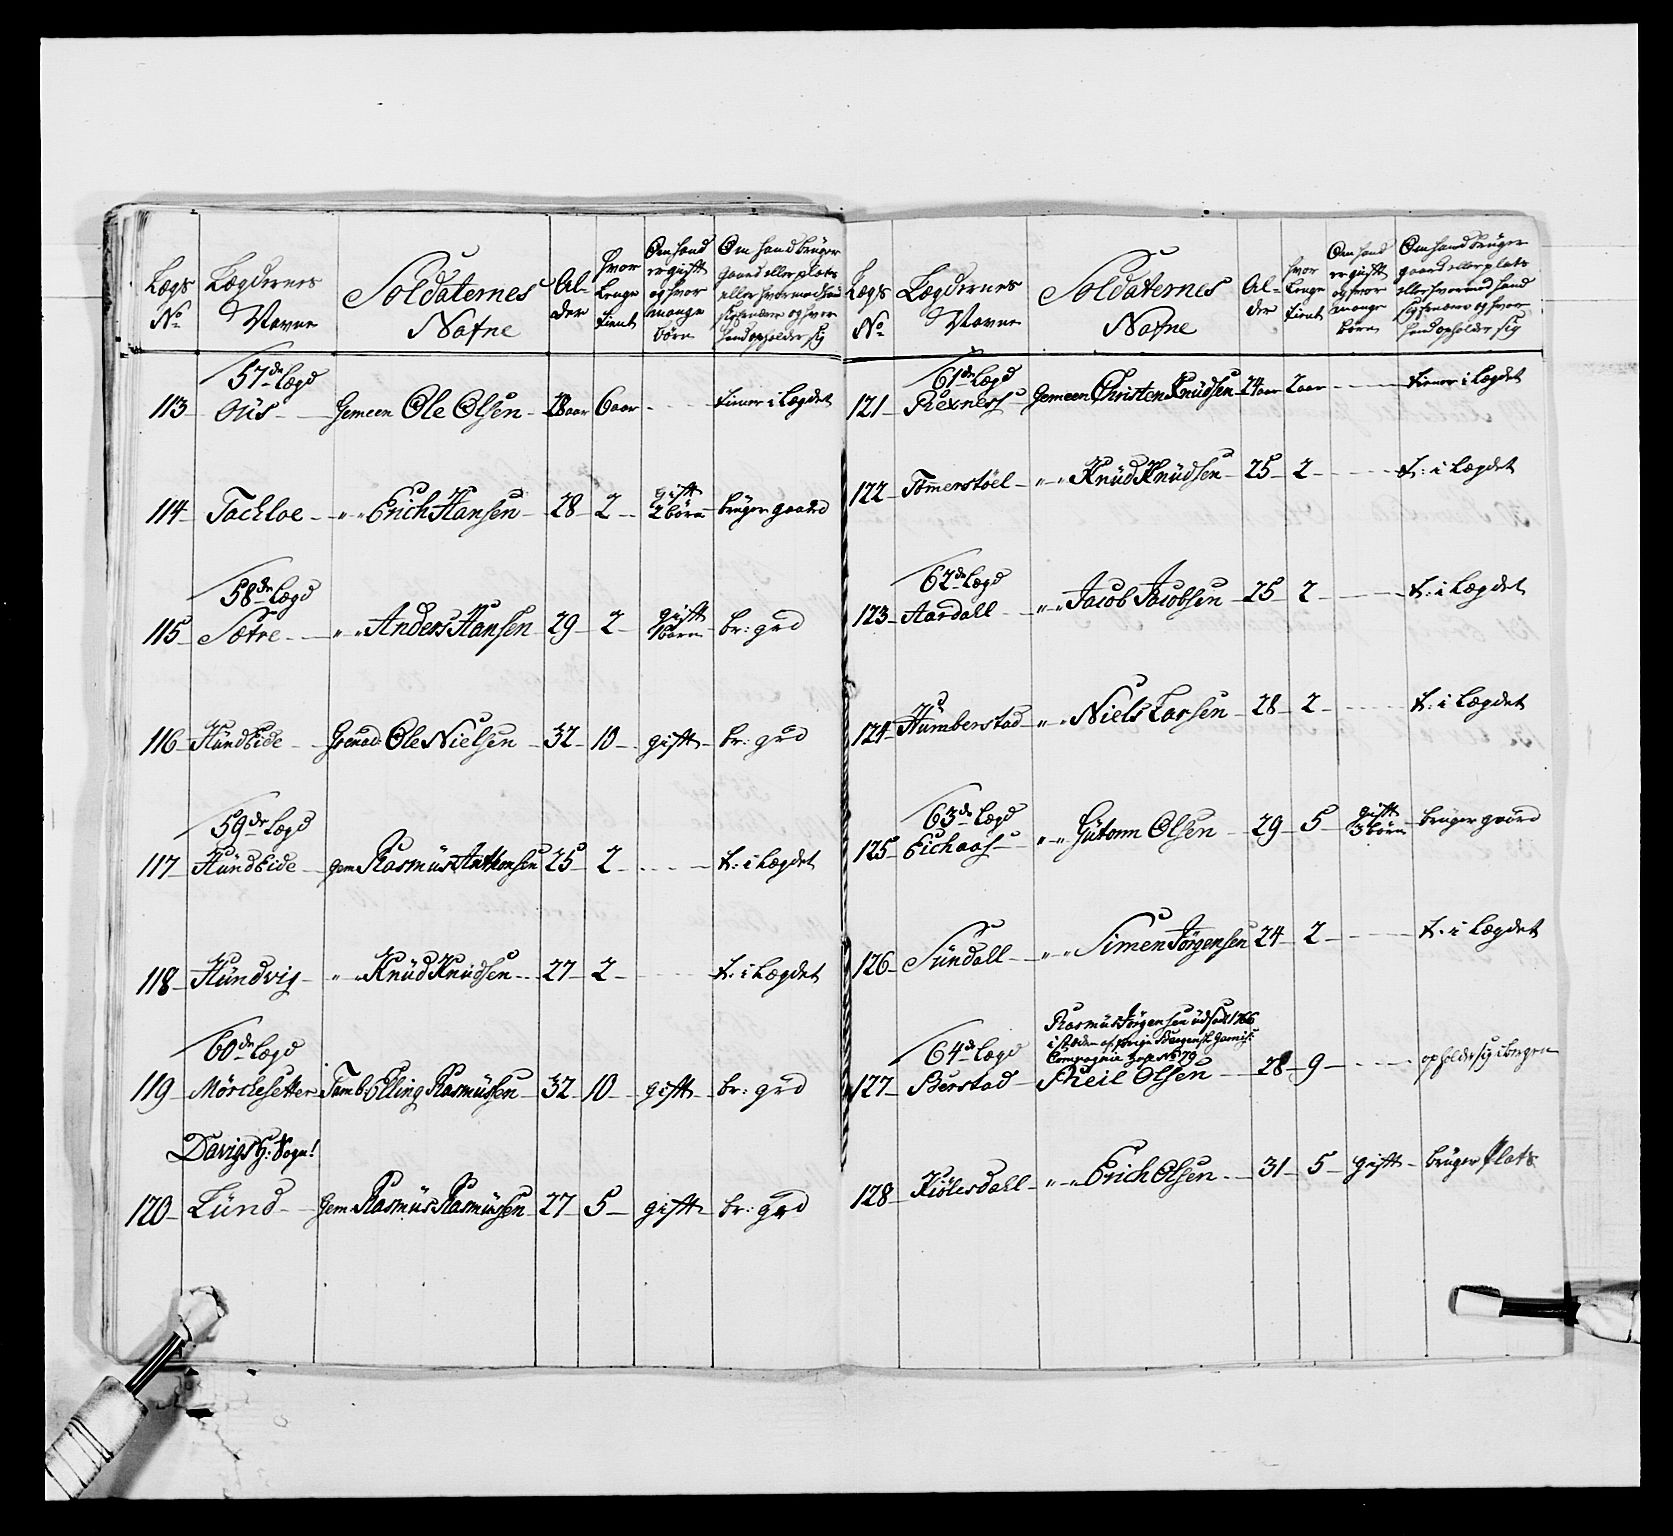 Lægs No
Lægdernes Navne
Soldaternes Nafne
Alder
hvor Lenge tient
Om hand er gieft og hvor mange börn
Om hand brüger gaard eller plats eller hvormed hand sig ernærer og hvor hand opholder sig
57de Lægd
113 Ous Gemeen Ole Olsen 28 aar 6 aar - - - tiener i Lægdet
114 Tackloe " " Erich Hansen 28 2 gift 2 börn brüger gaard
58de Lægd
115 Sætre " " Anders Hansen 29 2 gift 1 barn br: grd
116 Hündeide Grenad: Ole Nielsen 32 10 gift br: grd
59de Lægd
117 Hündeide gem Rasmüs Anthonsen 25 2 - - - t: i Lægdet
118 Hündvig " " Knüd Knüdsen 27 2 - - - t: i Lægdet
60de Lægd
119 Mörchesetter Tamb: Elling Rasmüssen 32 10 gift br: grd
Davigs H: Sogn!
120 Lünd Gem Rasmüs Rasmüsen 27 5 gift br: grd
Lægs No
Lægdernes Navne
Soldaternes Nafne
Alder
hvor Lenge tient
Om hand er gieft og hvor mange börn
Om hand brüger gaard eller plats eller hvormed hand sig ernærer og hvor hand opholder sig
61de Lægd
121 Rexness Gemeen Christen Knüdsen 24 aar 2 aar - - - tiener i Lægdet
122 Tömerstöel " " Knüd Knüdsen 25 2 - - - t: i Lægdet
62de Lægd
123 Aardall " " Jacob Jacobsen 25 2 - - - t: i Lægdet
124 Humberstad " " Niels Larsen 28 2 - - - t: i Lægdet
63de Lægd
125 Eichaas " " Gütorm Olsen 29 5 gift 3 börn brüger gaard
126 Sündall " " Simen Jörgensen 24 2 - - - t. i Lægdet
Rasmüs Jörgensen üdsat 1766
i stæden af forrige Bergensk Garnis:
Compagnie No 79
64de Lægd
127 Berstad Reil Olsen 28 9 - - - opholder sig i bergen
128 Kiölesdall " " Erich Olsen 31 5 gift brüger Plats